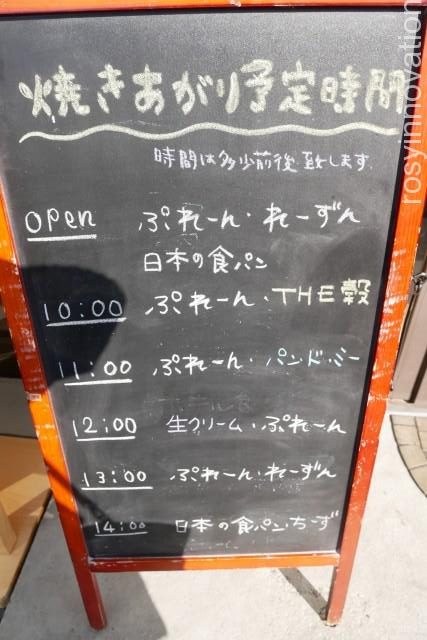 焼きあがり予定時間
時間は多少前後致します
open ぷれーん・れーずん
日本の食パン
10:00 ぷれーん・THE穀
11:00 ぷれーん・パンド・ミー
12:00 生クリーム・ぷれーん
13:00 ぷれーん・れーずん
14:00 日本の食パン・ちーず
rosyinnovation